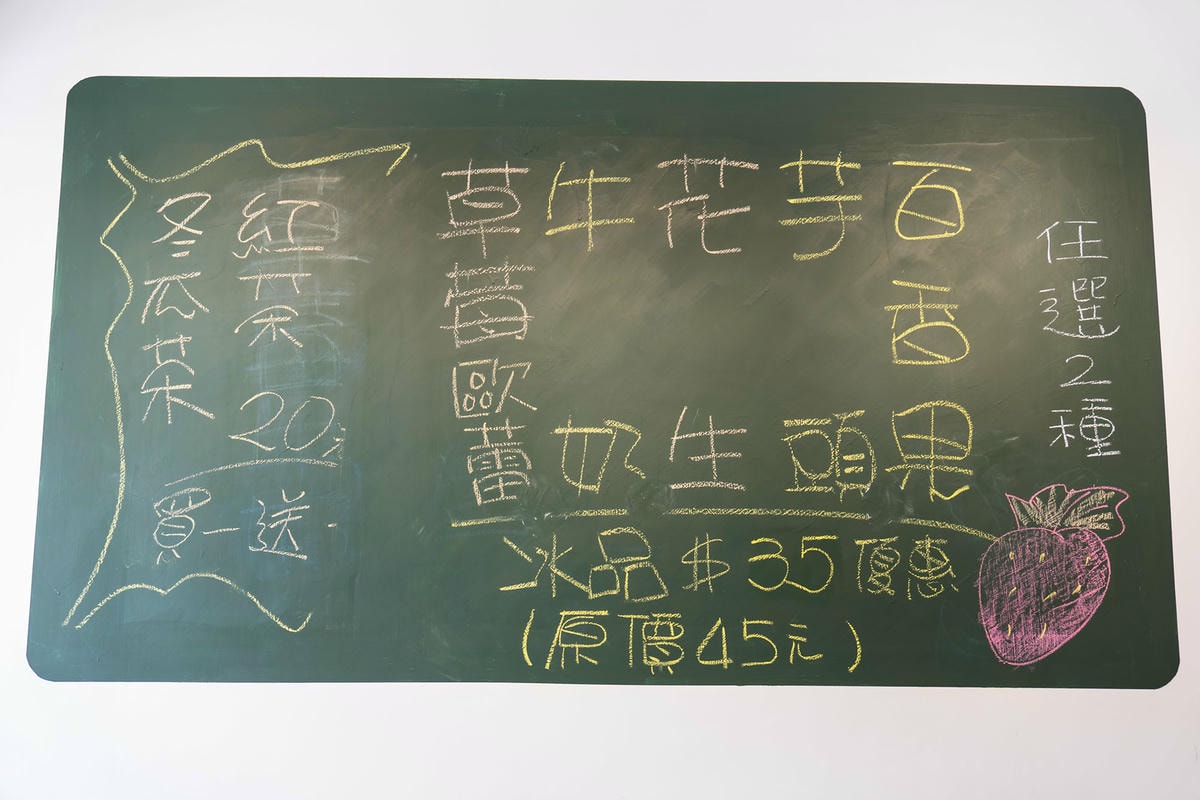 任選2種
百香果
芋頭
花生
牛奶
草莓歐蕾
冰品$35優惠
(原價45元)
紅茶 20
冬瓜茶
買一送一